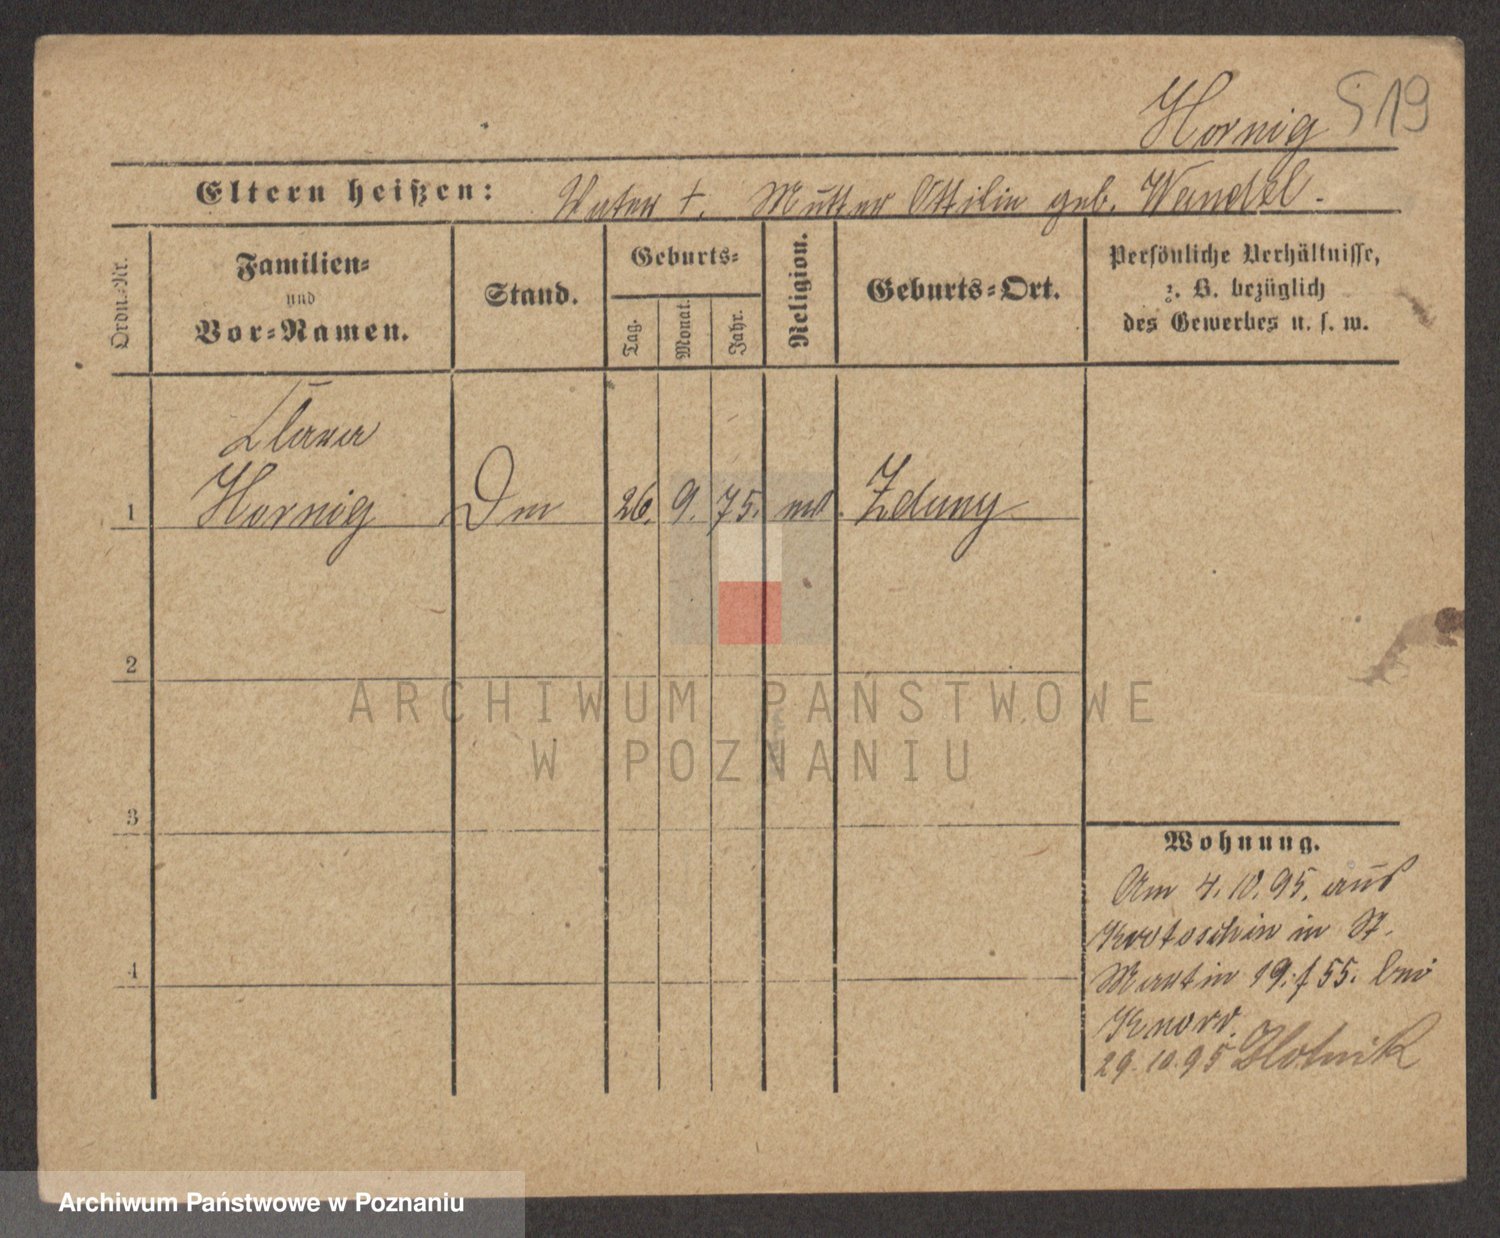 Hornig 519
Eltern heißen: Vater †. Mutter Ottilie geb. Wandel.
Ordn.-Nr.
Familien-
und
Vor-Namen.
Stand.
Geburts-
Tag.
Monat.
Jahr.
Religion.
Geburts-Ort.
Persönliche Verhältnisse,
z. B. bezüglich
des Gewerbes u. s. w.
Clara
1 Hornig 26. 9. 75. Zduny
2
3
4
Wohnung.
Am 4.10.95. aus
Krotoschin in St.
Martin 19. 55. bei
Knorr.
29.10.95
ARCHIWUM PAŃSTWOWE
W POZNANIU
Archiwum Państwowe w Poznaniu